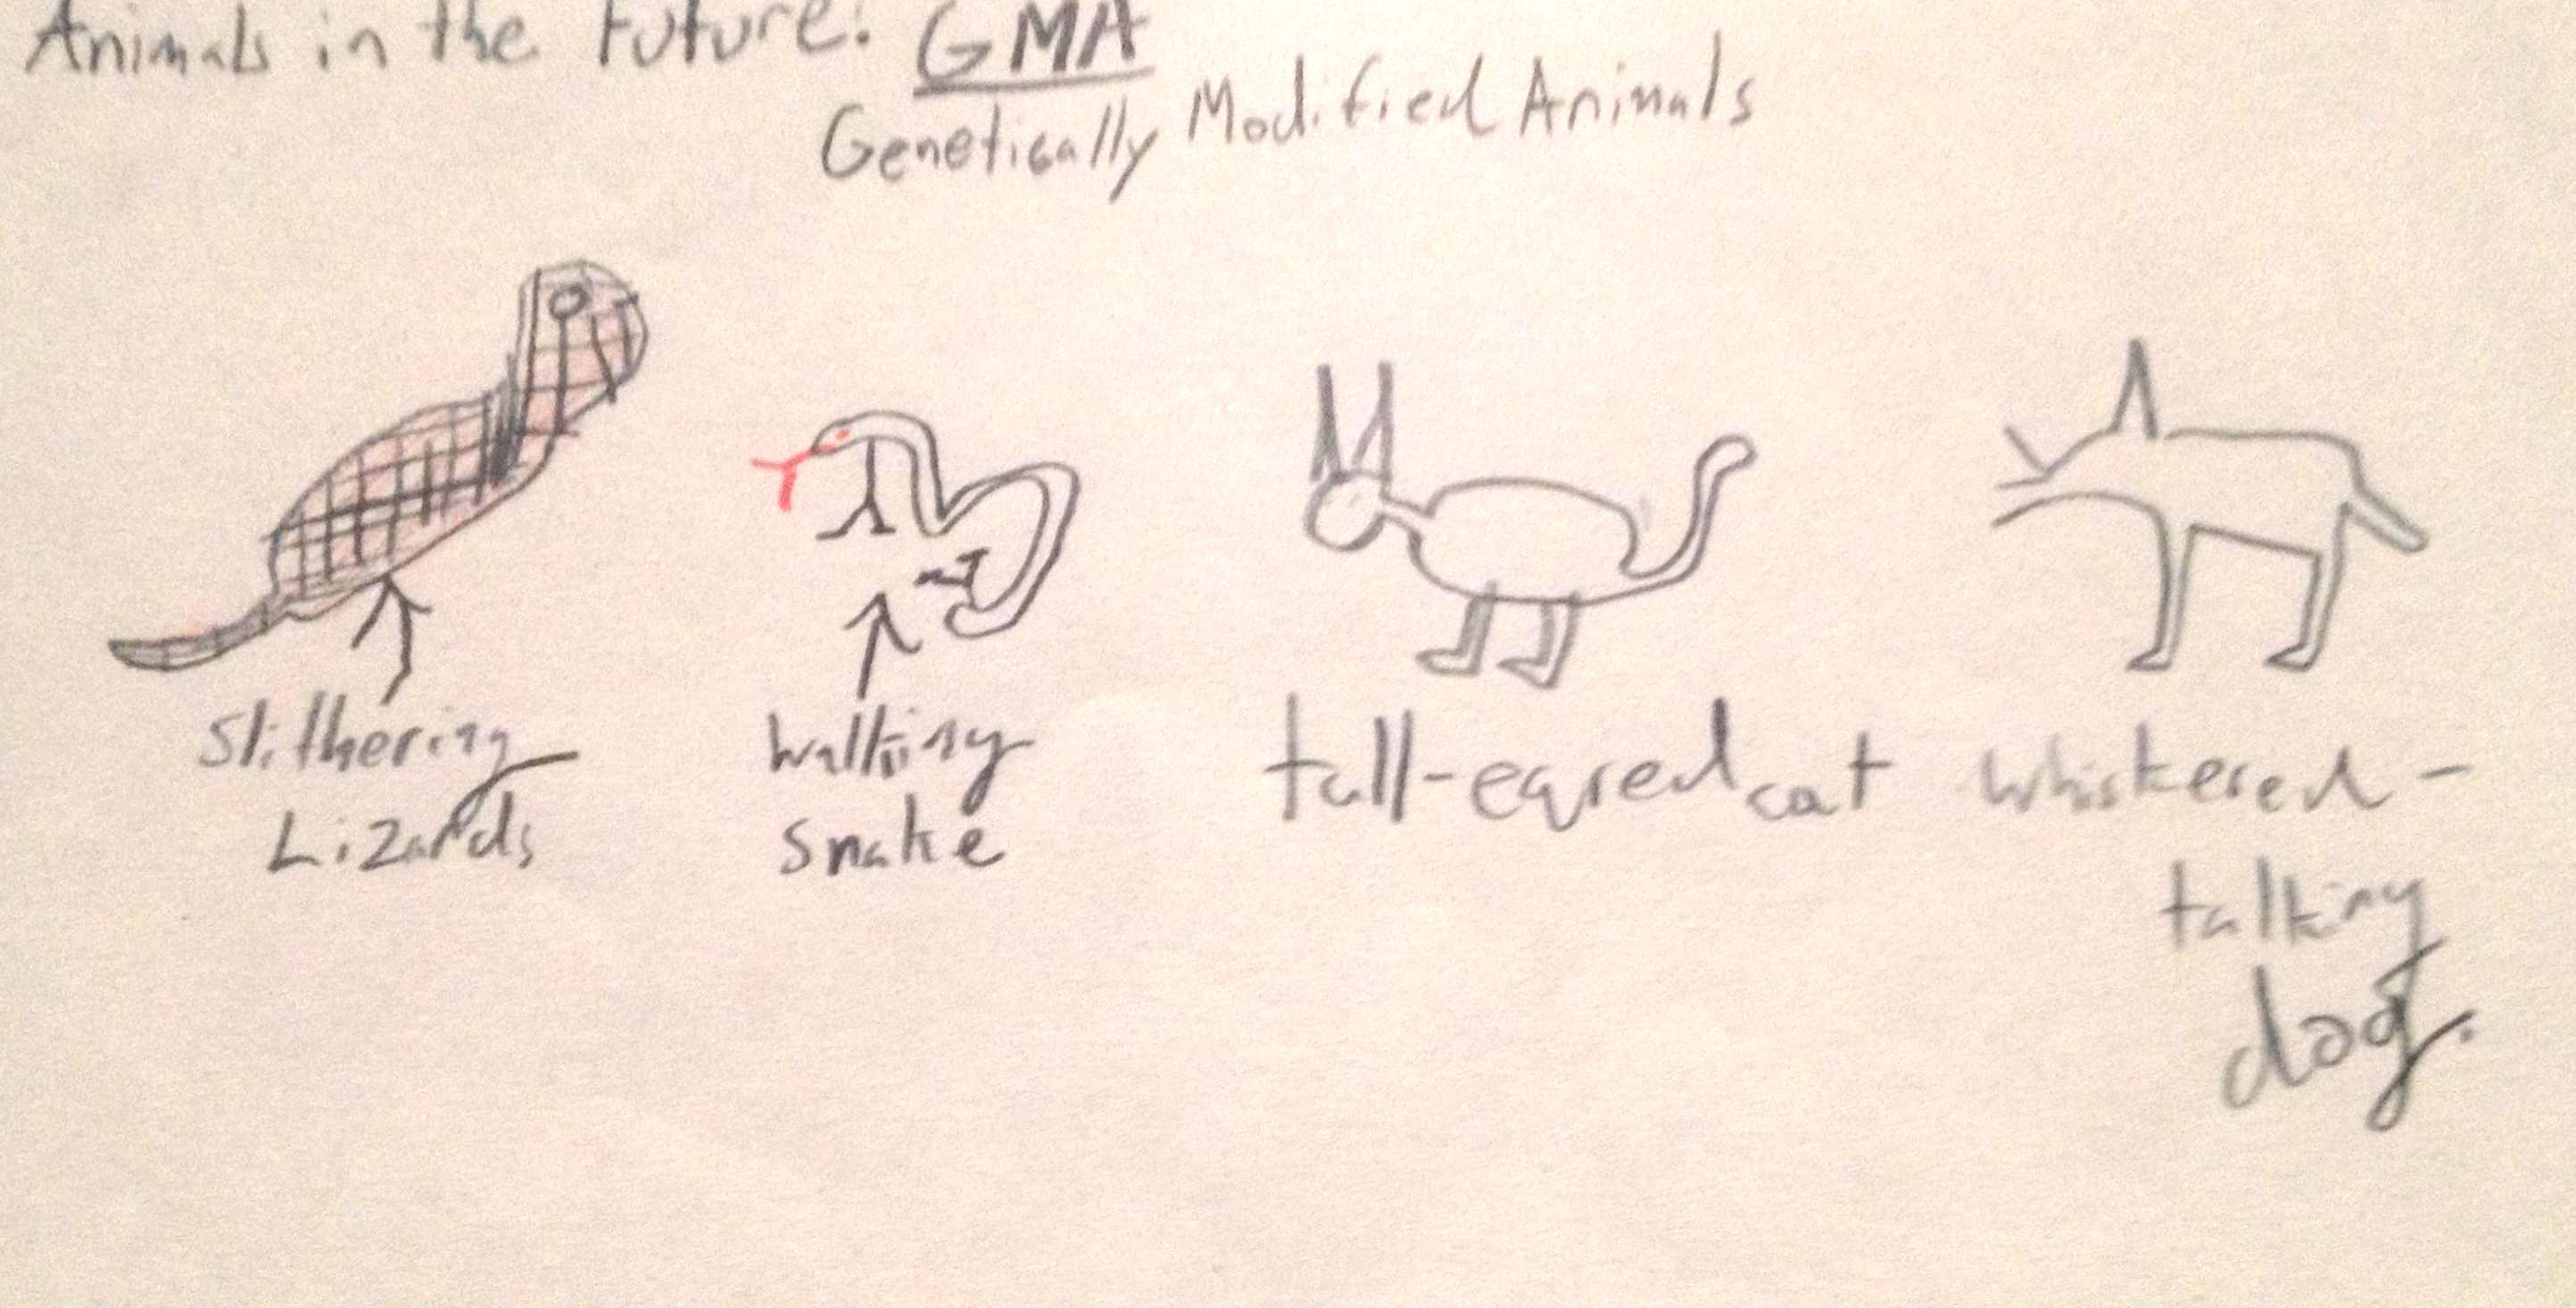 Animals in the Future: GMA
Genetically Modified Animals
Slithering
Lizards
walking
snake
tall-eared cat
whiskered-
talking
dog.